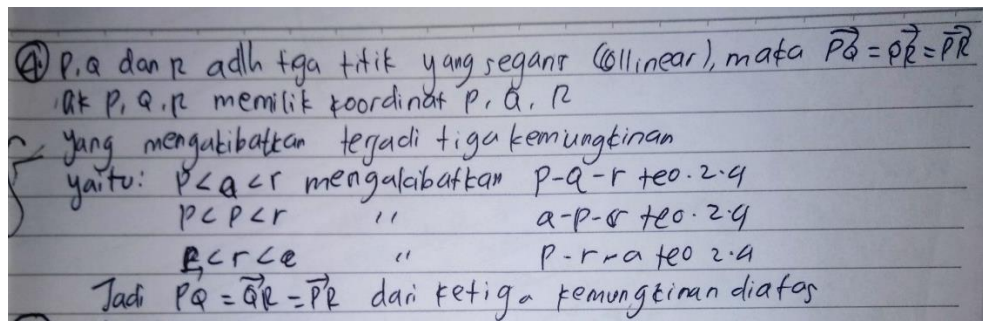 ④ P, Q dan R adlh tga titik yang segaris (Collinear), maka PQ = QR = PR
P, Q, R memilik koordinat P, Q, R
yang mengakibatkan terjadi tiga kemungkinan
yaitu: P<Q<r mengakibatkan P-Q-r teo. 2.4
P<P<r " a-p-r teo. 2.4
<r<e " P-r-a teo 2.4
Jadi PQ = QR = PR dari ketiga kemungkinan diatas